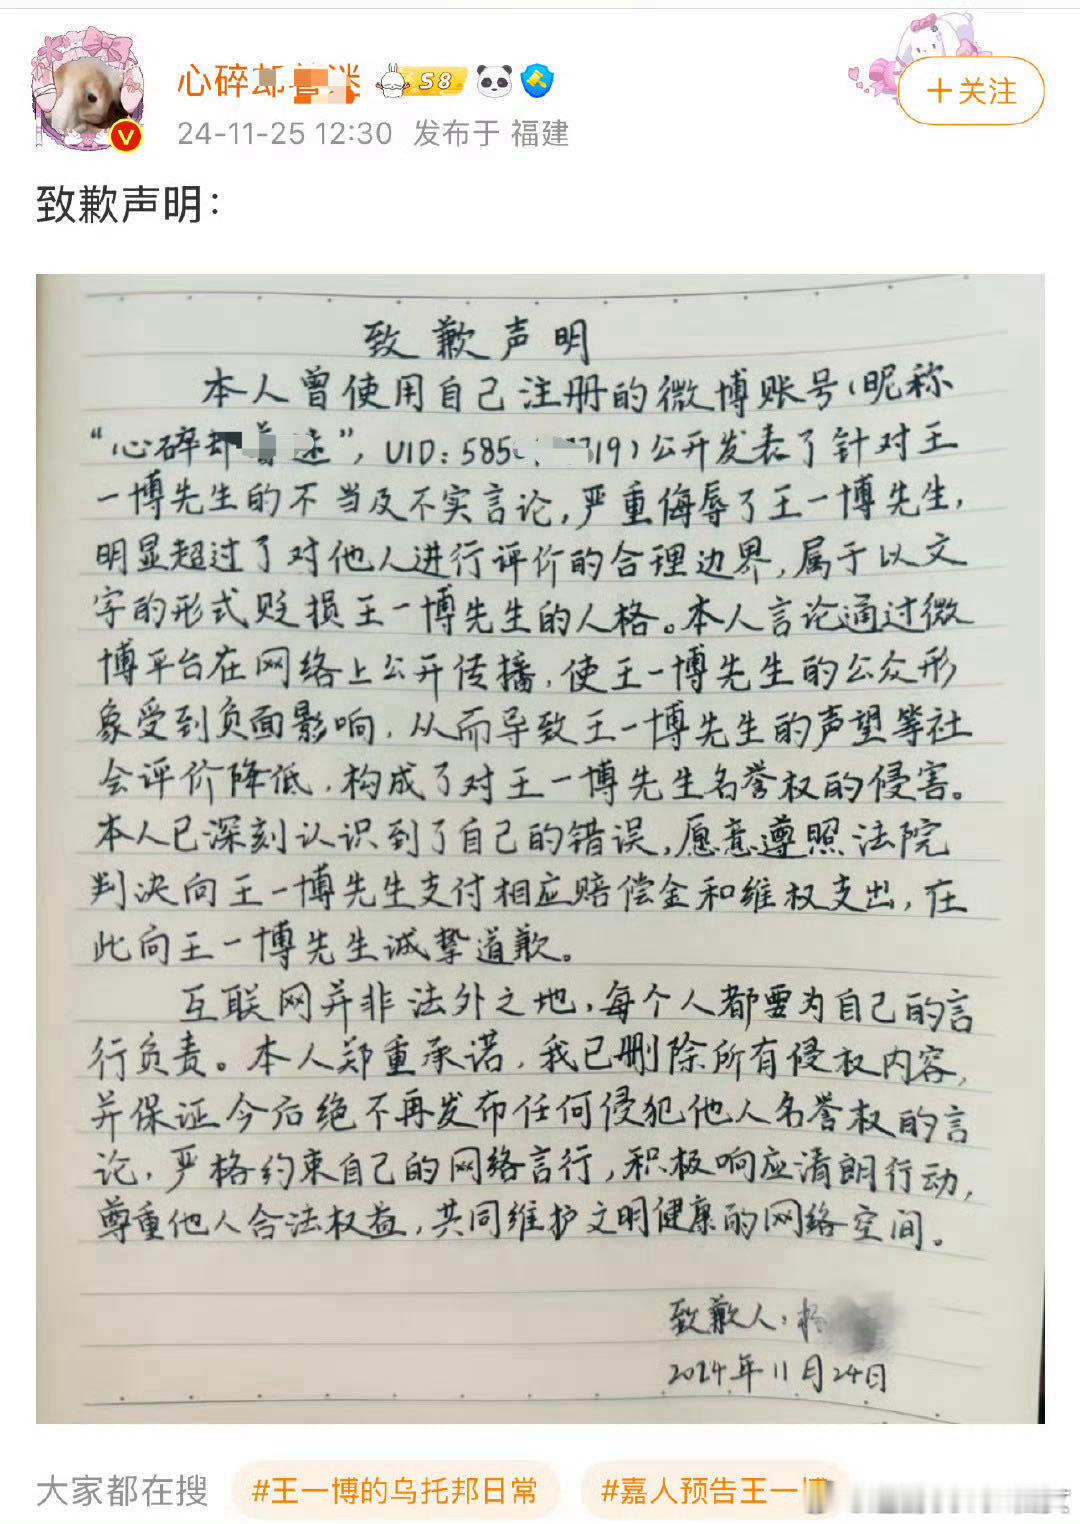 心碎却
S8
V
24-11-25 12:30 发布于 福建
＋关注
致歉声明：
致歉声明
本人曾使用自己注册的微博账号（昵称
“心碎却 迷”，UID：585 19）公开发表了针对王
一博先生的不当及不实言论，严重侮辱了王一博先生，
明显超过了对他人进行评价的合理边界，属于以文
字的形式贬损王一博先生的人格。本人言论通过微
博平台在网络上公开传播，使王一博先生的公众形
象受到负面影响，从而导致王一博先生的声望等社
会评价降低，构成了对王一博先生名誉权的侵害。
本人已深刻认识到了自己的错误，愿意遵照法院
判决向王一博先生支付相应赔偿金和维权支出，在
此向王一博先生诚挚道歉。
互联网并非法外之地，每个人都要为自己的言
行负责。本人郑重承诺，我已删除所有侵权内容，
并保证今后绝不再发布任何侵犯他人名誉权的言
论，严格约束自己的网络言行，积极响应清朗行动，
尊重他人合法权益，共同维护文明健康的网络空间。
致歉人：杨
2024年11月24日
大家都在搜 #王一博的乌托邦日常 #嘉人预告王一博